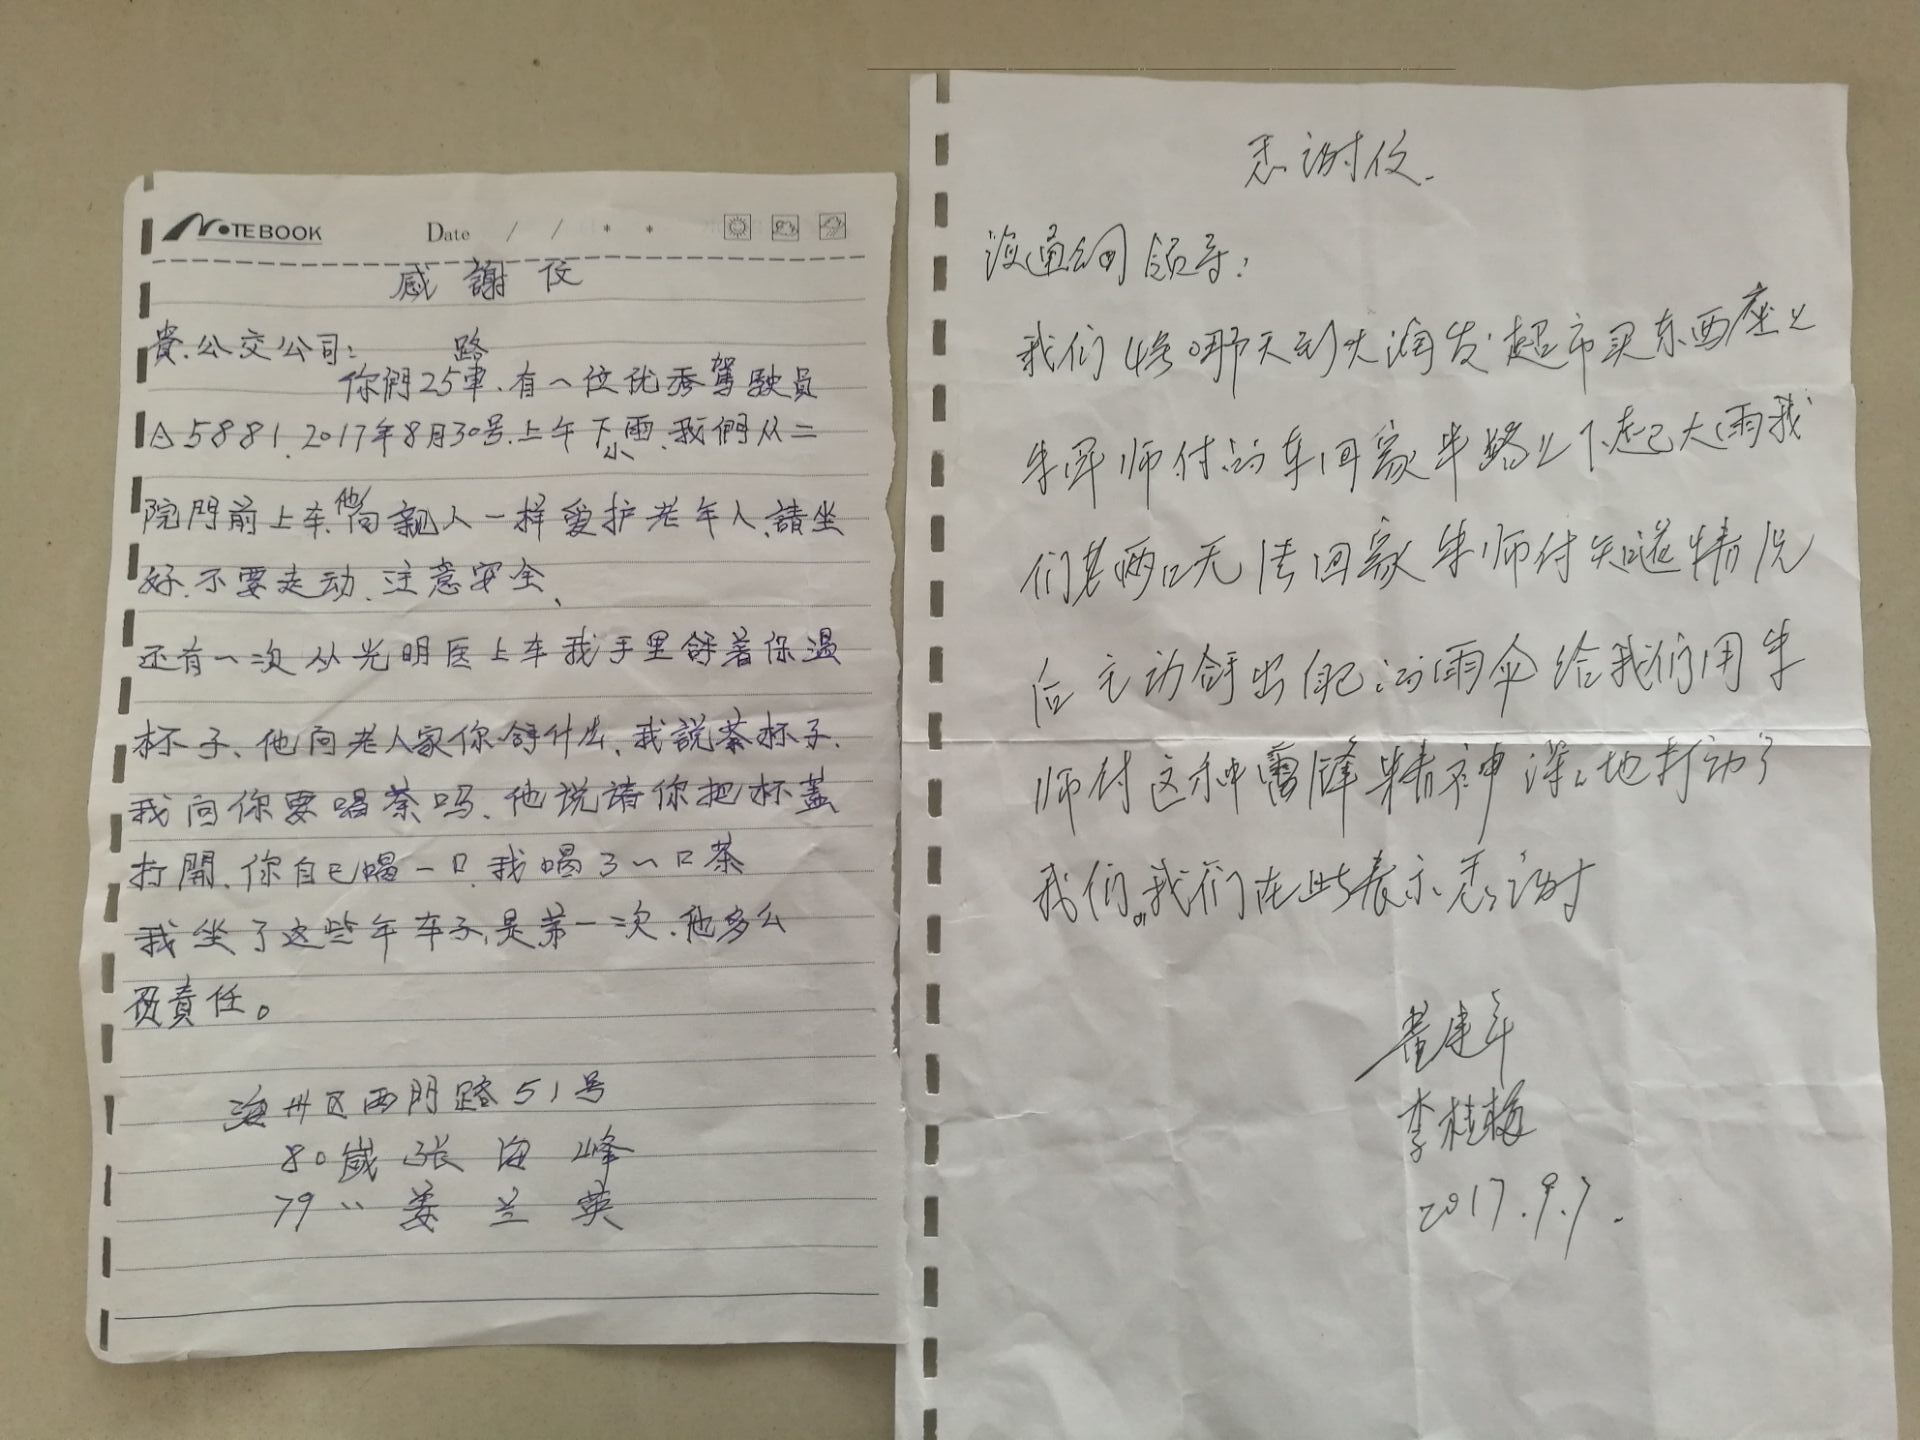 NOTEBOOK Date / / * *
感謝伩
貴公交公司:
你們25路車、有一位优秀駕駛员
A5881、2017年8月30号、上午下小雨、我們从二
院門前上车、他向親人一样爱护老年人、請坐
好、不要走动、注意安全、
还有一次从光明医上车我手里拿着保温
杯子、他问老人家你拿什么、我説茶杯子、
我问你要喝茶吗、他说请你把杯蓋
打開、你自己喝一口、我喝了一口茶
我坐了这些年车子、是第一次、他多么
负責任。
海州区西門路51号
80歲 张海峰
79 〃 姜兰英
感谢伩.
海通公司领导:
我们4号那天到大润发超市买东西座上
朱 师付的车回家半路上下起大雨我
们老两口无法回家朱师付知道情况
后主动拿出自己的雨伞给我们用朱
师付这种雷锋精神深深地打动了
我们。我们在此表示感谢
建年
李桂梅
2017.9.7.